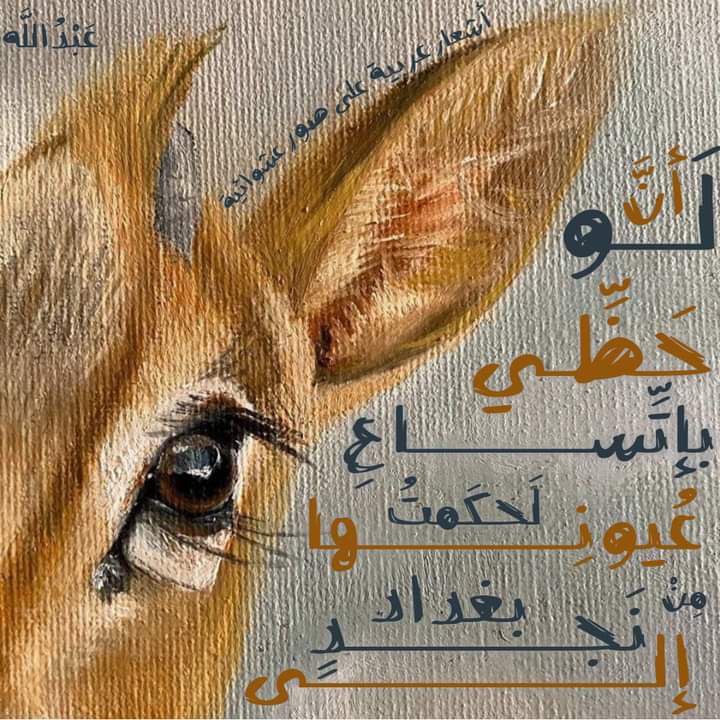 عَبْدُاللَّه
أشعار عربية على صور عشوائية
لَو أَنَّ
حَظِّي
بإتِّساعِ
عُيونِها لَحَكَمتُ
مِنْ بغداد
إلى نَجدٍ